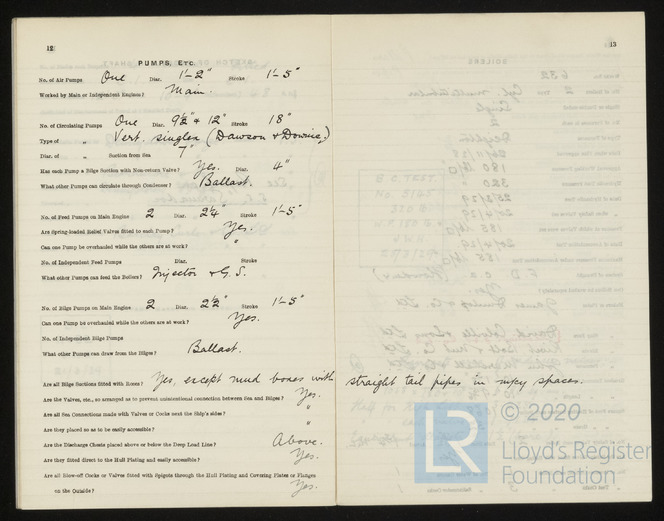 12
PUMPS, ETC.
No. of Air Pumps One Diar. 1'-2" Stroke 1'-5"
Worked by Main or Independent Engines? Main.
No. of Circulating Pumps One Diar. 9½" & 12" Stroke 18"
Type of " Vert. singlex (Dawson & Downie,)
Diar. of " Suction from Sea 7"
Has each Pump a Bilge Suction with Non-return Valve? Yes. Diar. 4"
What other Pumps can circulate through Condenser? Ballast.
No. of Feed Pumps on Main Engine 2 Diar. 2¼" Stroke 1'-5"
Are Spring-loaded Relief Valves fitted to each Pump? Yes.
Can one Pump be overhauled while the others are at work? "
No. of Independent Feed Pumps Diar. Stroke
What other Pumps can feed the Boilers? Injector & G.S.
No. of Bilge Pumps on Main Engine 2 Diar. 2½" Stroke 1'-5"
Can one Pump be overhauled while the others are at work? Yes.
No. of Independent Bilge Pumps
What other Pumps can draw from the Bilges? Ballast.
Are all Bilge Suctions fitted with Roses? Yes, except mud boxes with straight tail pipes in mcy spaces.
Are the Valves, etc., so arranged as to prevent unintentional connection between Sea and Bilges? Yes.
Are all Sea Connections made with Valves or Cocks next the Ship's sides? "
Are they placed so as to be easily accessible? "
Are the Discharge Chests placed above or below the Deep Load Line? Above.
Are they fitted direct to the Hull Plating and easily accessible? Yes.
Are all Blow-off Cocks or Valves fitted with Spigots through the Hull Plating and Covering Plates or Flanges
on the Outside? Yes.
13
LR
© 2020
Lloyd's Register
Foundation